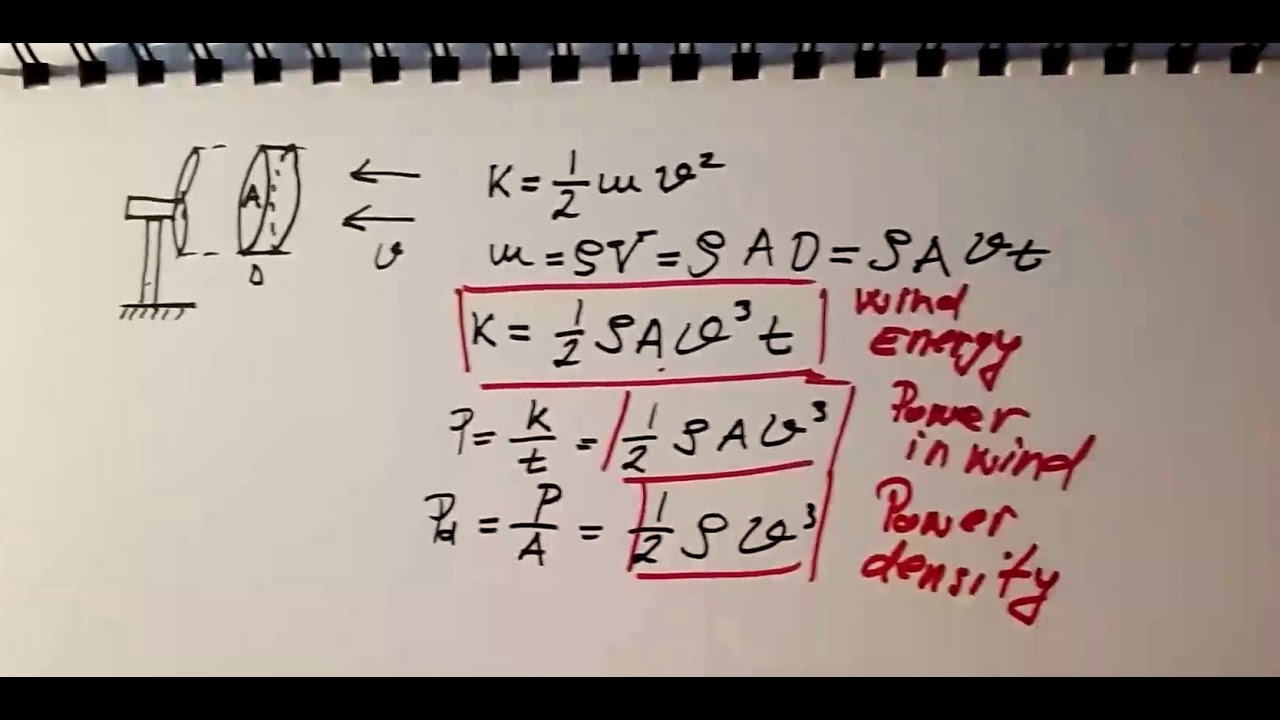 A
D
υ
K = 1/2 m υ²
m = ρV = ρ A D = ρ A υ t
K = 1/2 ρ A υ³ t
wind
Energy
P = K/t = 1/2 ρ A υ³
Power
in wind
Pd = P/A = 1/2 ρ υ³
Power
density